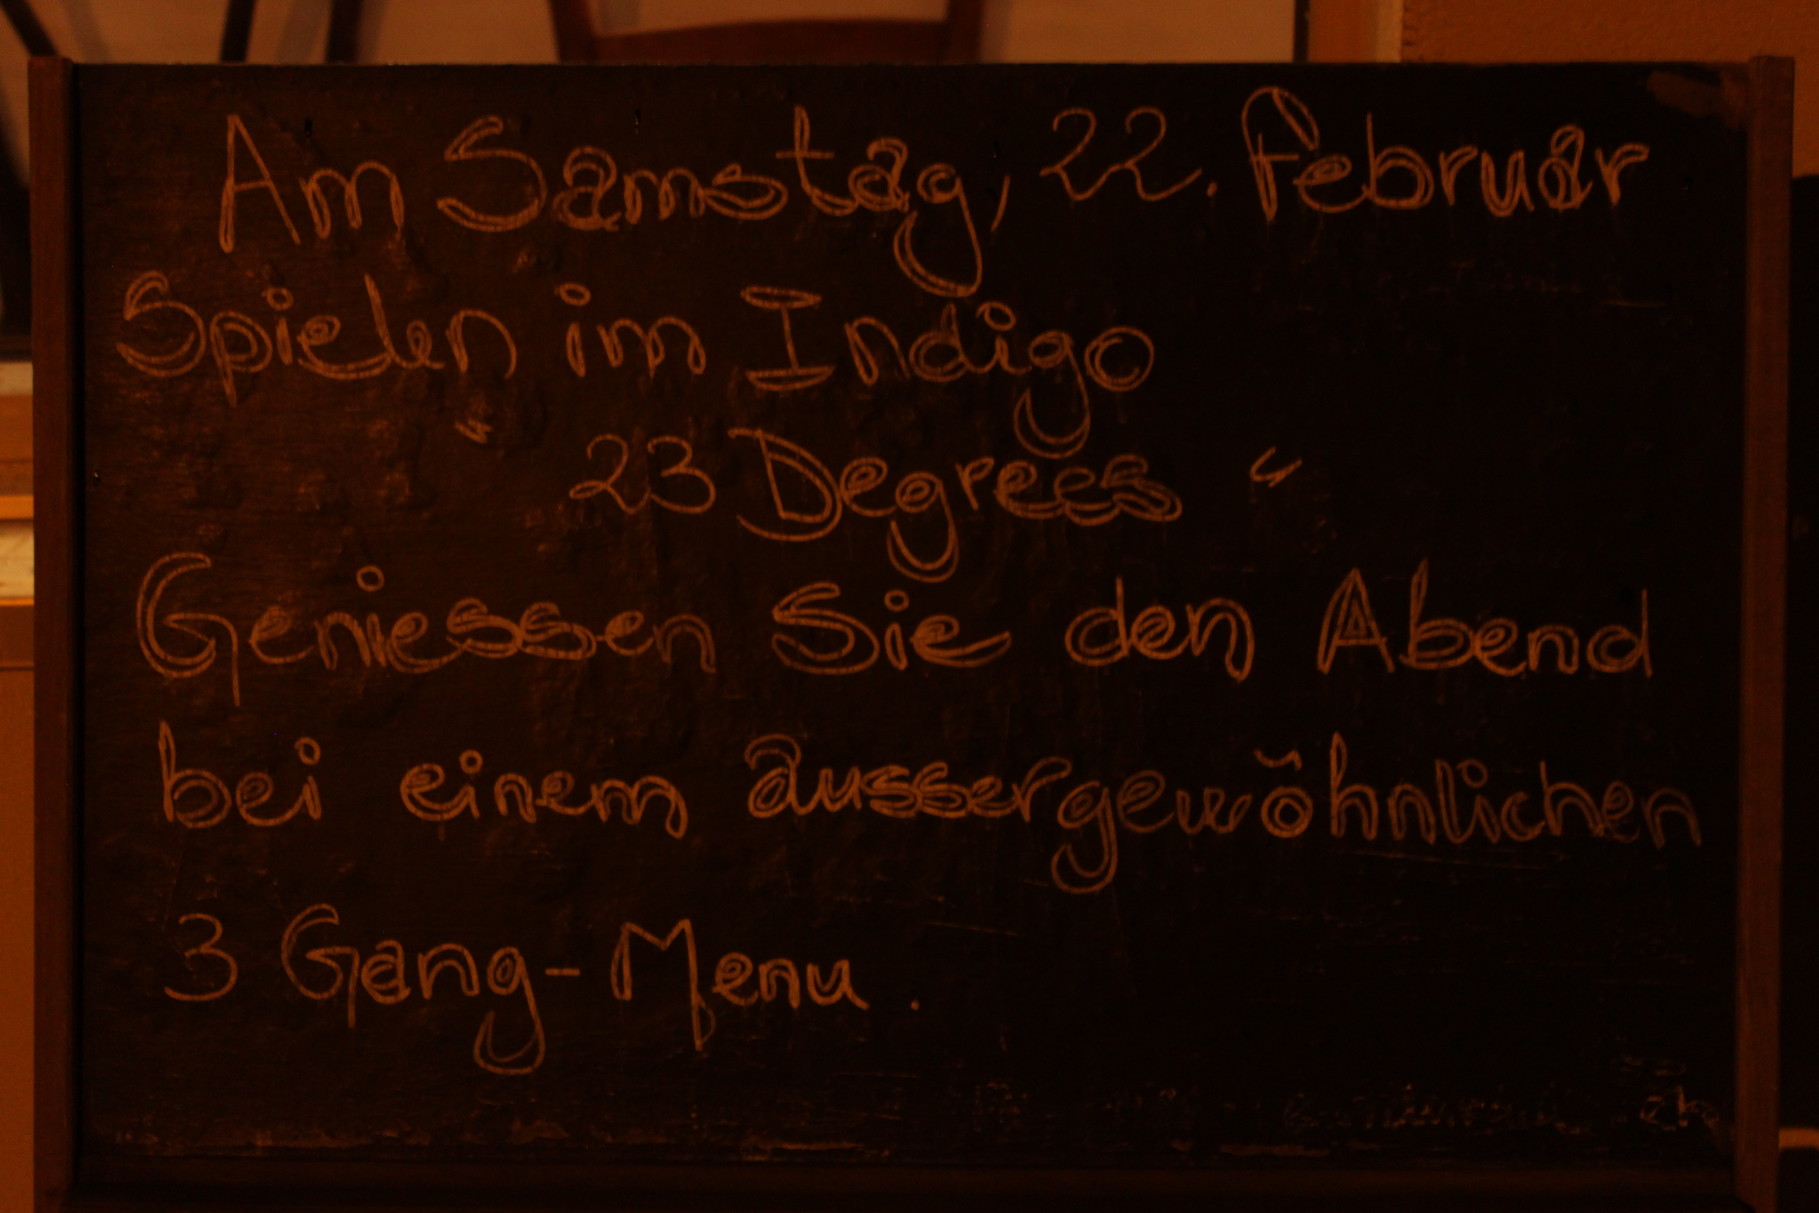 Am Samstag, 22. Februar
Spielen im Indigo
" 23 Degrees "
Geniessen Sie den Abend
bei einem aussergewöhnlichen
3 Gang-Menu.